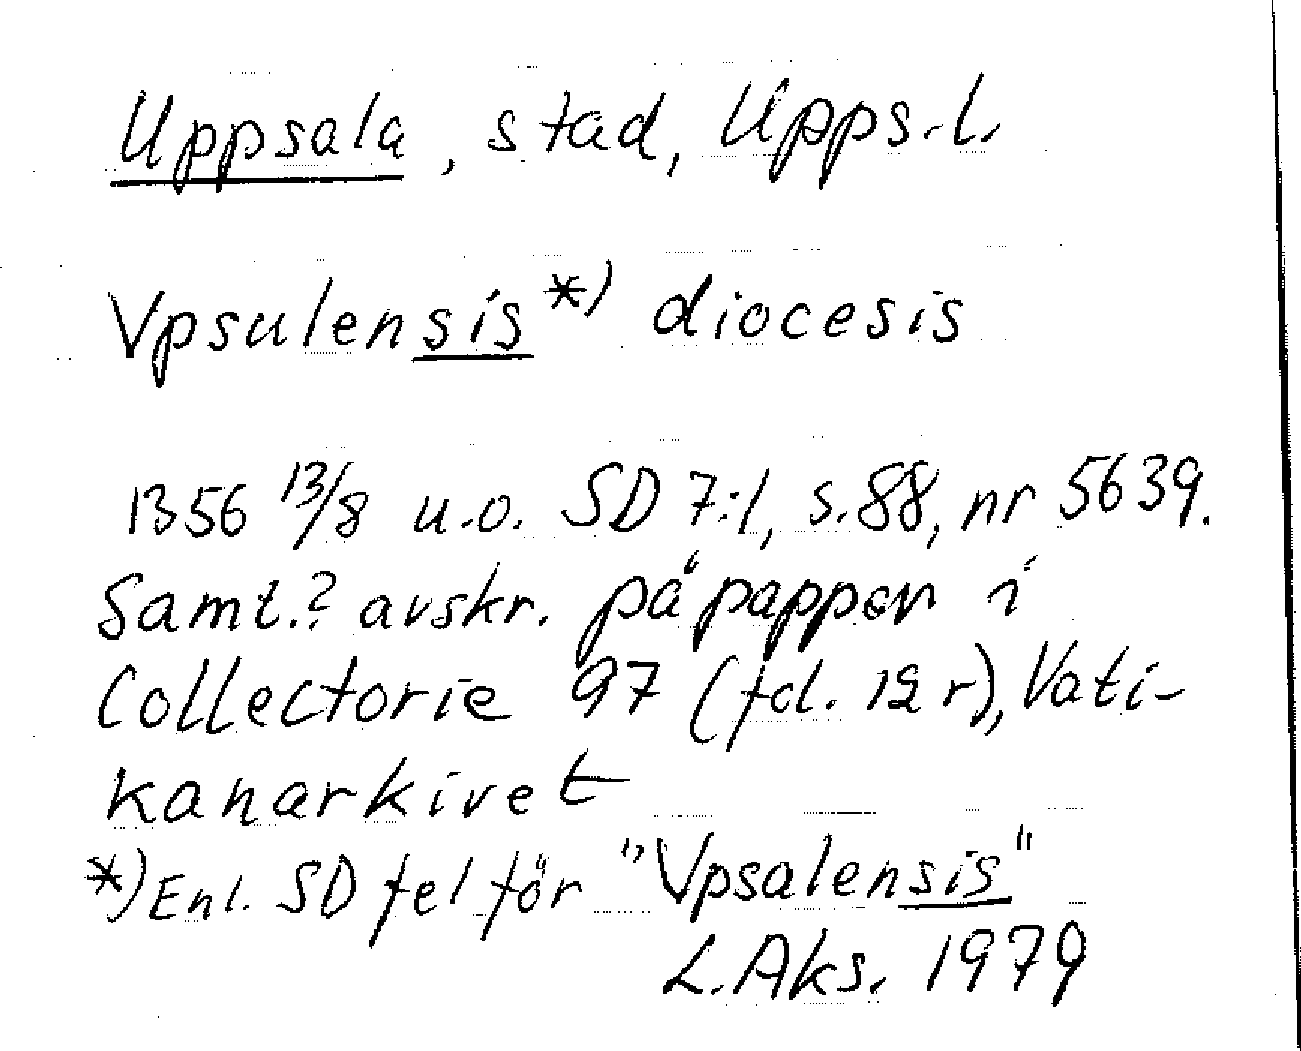 Uppsala, stad, Upps.l.
Vpsulensis *) diocesis
1356 13/8 u.o. SD 7:1, s.88, nr 5639.
Samt.? avskr. på papper i
Collectorie 97 (fol. 12 r), Vati-
kanarkivet
*) Enl. SD fel för "Vpsalensis"
L.Aks. 1979